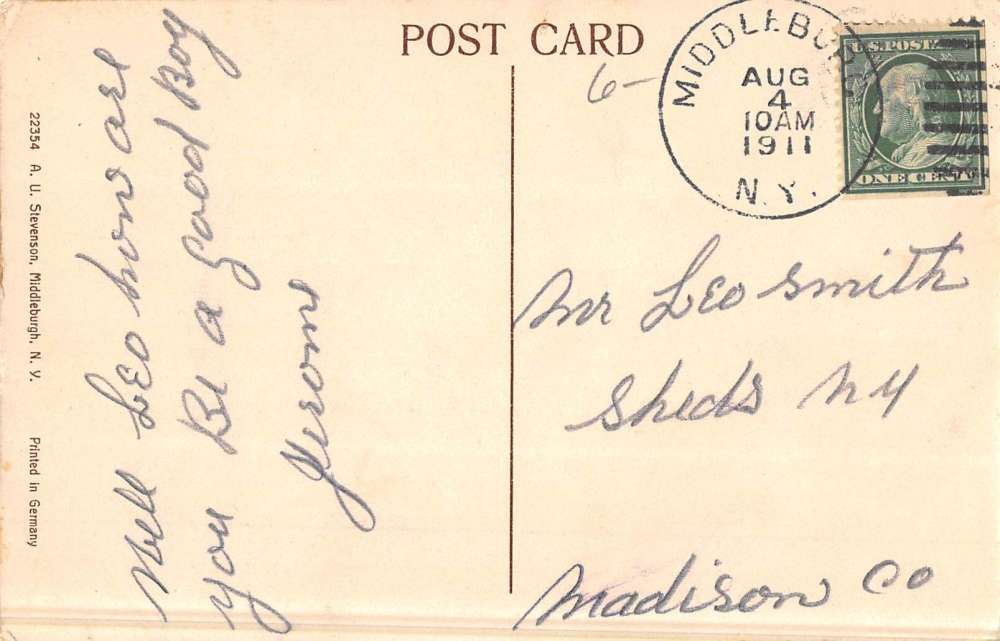 POST CARD
6-
MIDDLEBU
AUG
4
10AM
1911
N.Y.
U.S. POST
ONE CENT
Well LEO how are
you BE a good Boy
Jerome
22354 A. U. Stevenson, Middleburgh, N. Y. Printed in Germany
Mr LEO Smith
Sheds NY
Madison Co